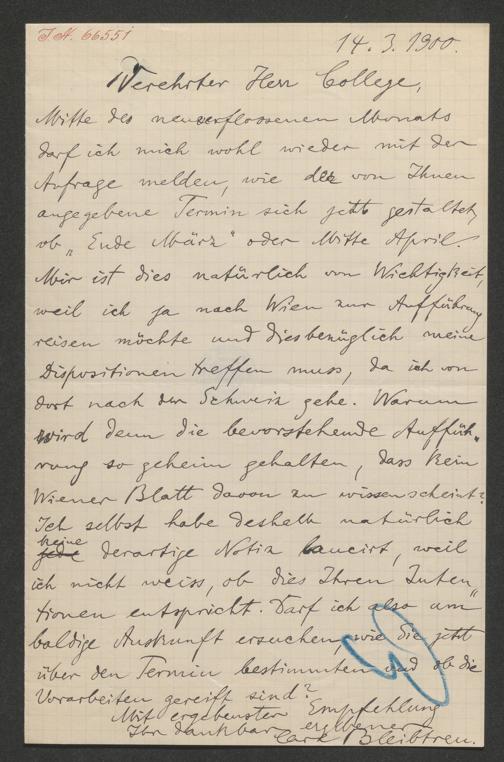 I.N. 66551
14. 3. 1900.
Verehrter Herr College,
Mitte des neuverflossenen Monats
darf ich mich wohl wieder mit der
Anfrage melden, wie der von Ihnen
angegebene Termin sich jetzt gestaltet,
ob „Ende März" oder Mitte April.
Mir ist dies natürlich von Wichtigkeit,
weil ich ja nach Wien zur Aufführung
reisen möchte und diesbezüglich meine
Dispositionen treffen muss, da ich von
dort nach der Schweiz gehe. Warum
wird denn die bevorstehende Auffüh-
rung so geheim gehalten, dass kein
Wiener Blatt davon zu wissen scheint?
Ich selbst habe deshalb natürlich
keine
jede derartige Notiz lancirt, weil
ich nicht weiss, ob dies Ihren Inten-
tionen entspricht. Darf ich also um
baldige Auskunft ersuchen, wie Sie jetzt
über den Termin bestimmten und ob die
Vorarbeiten gereift sind?
Mit ergebenster Empfehlung
Ihr dankbar ergebener
Carl Bleibtreu.